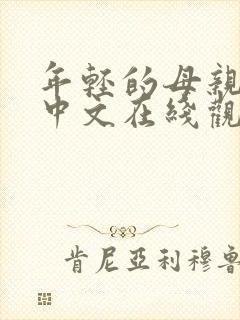 年轻的母亲
中文在綫觀
肯尼亞利穆魯